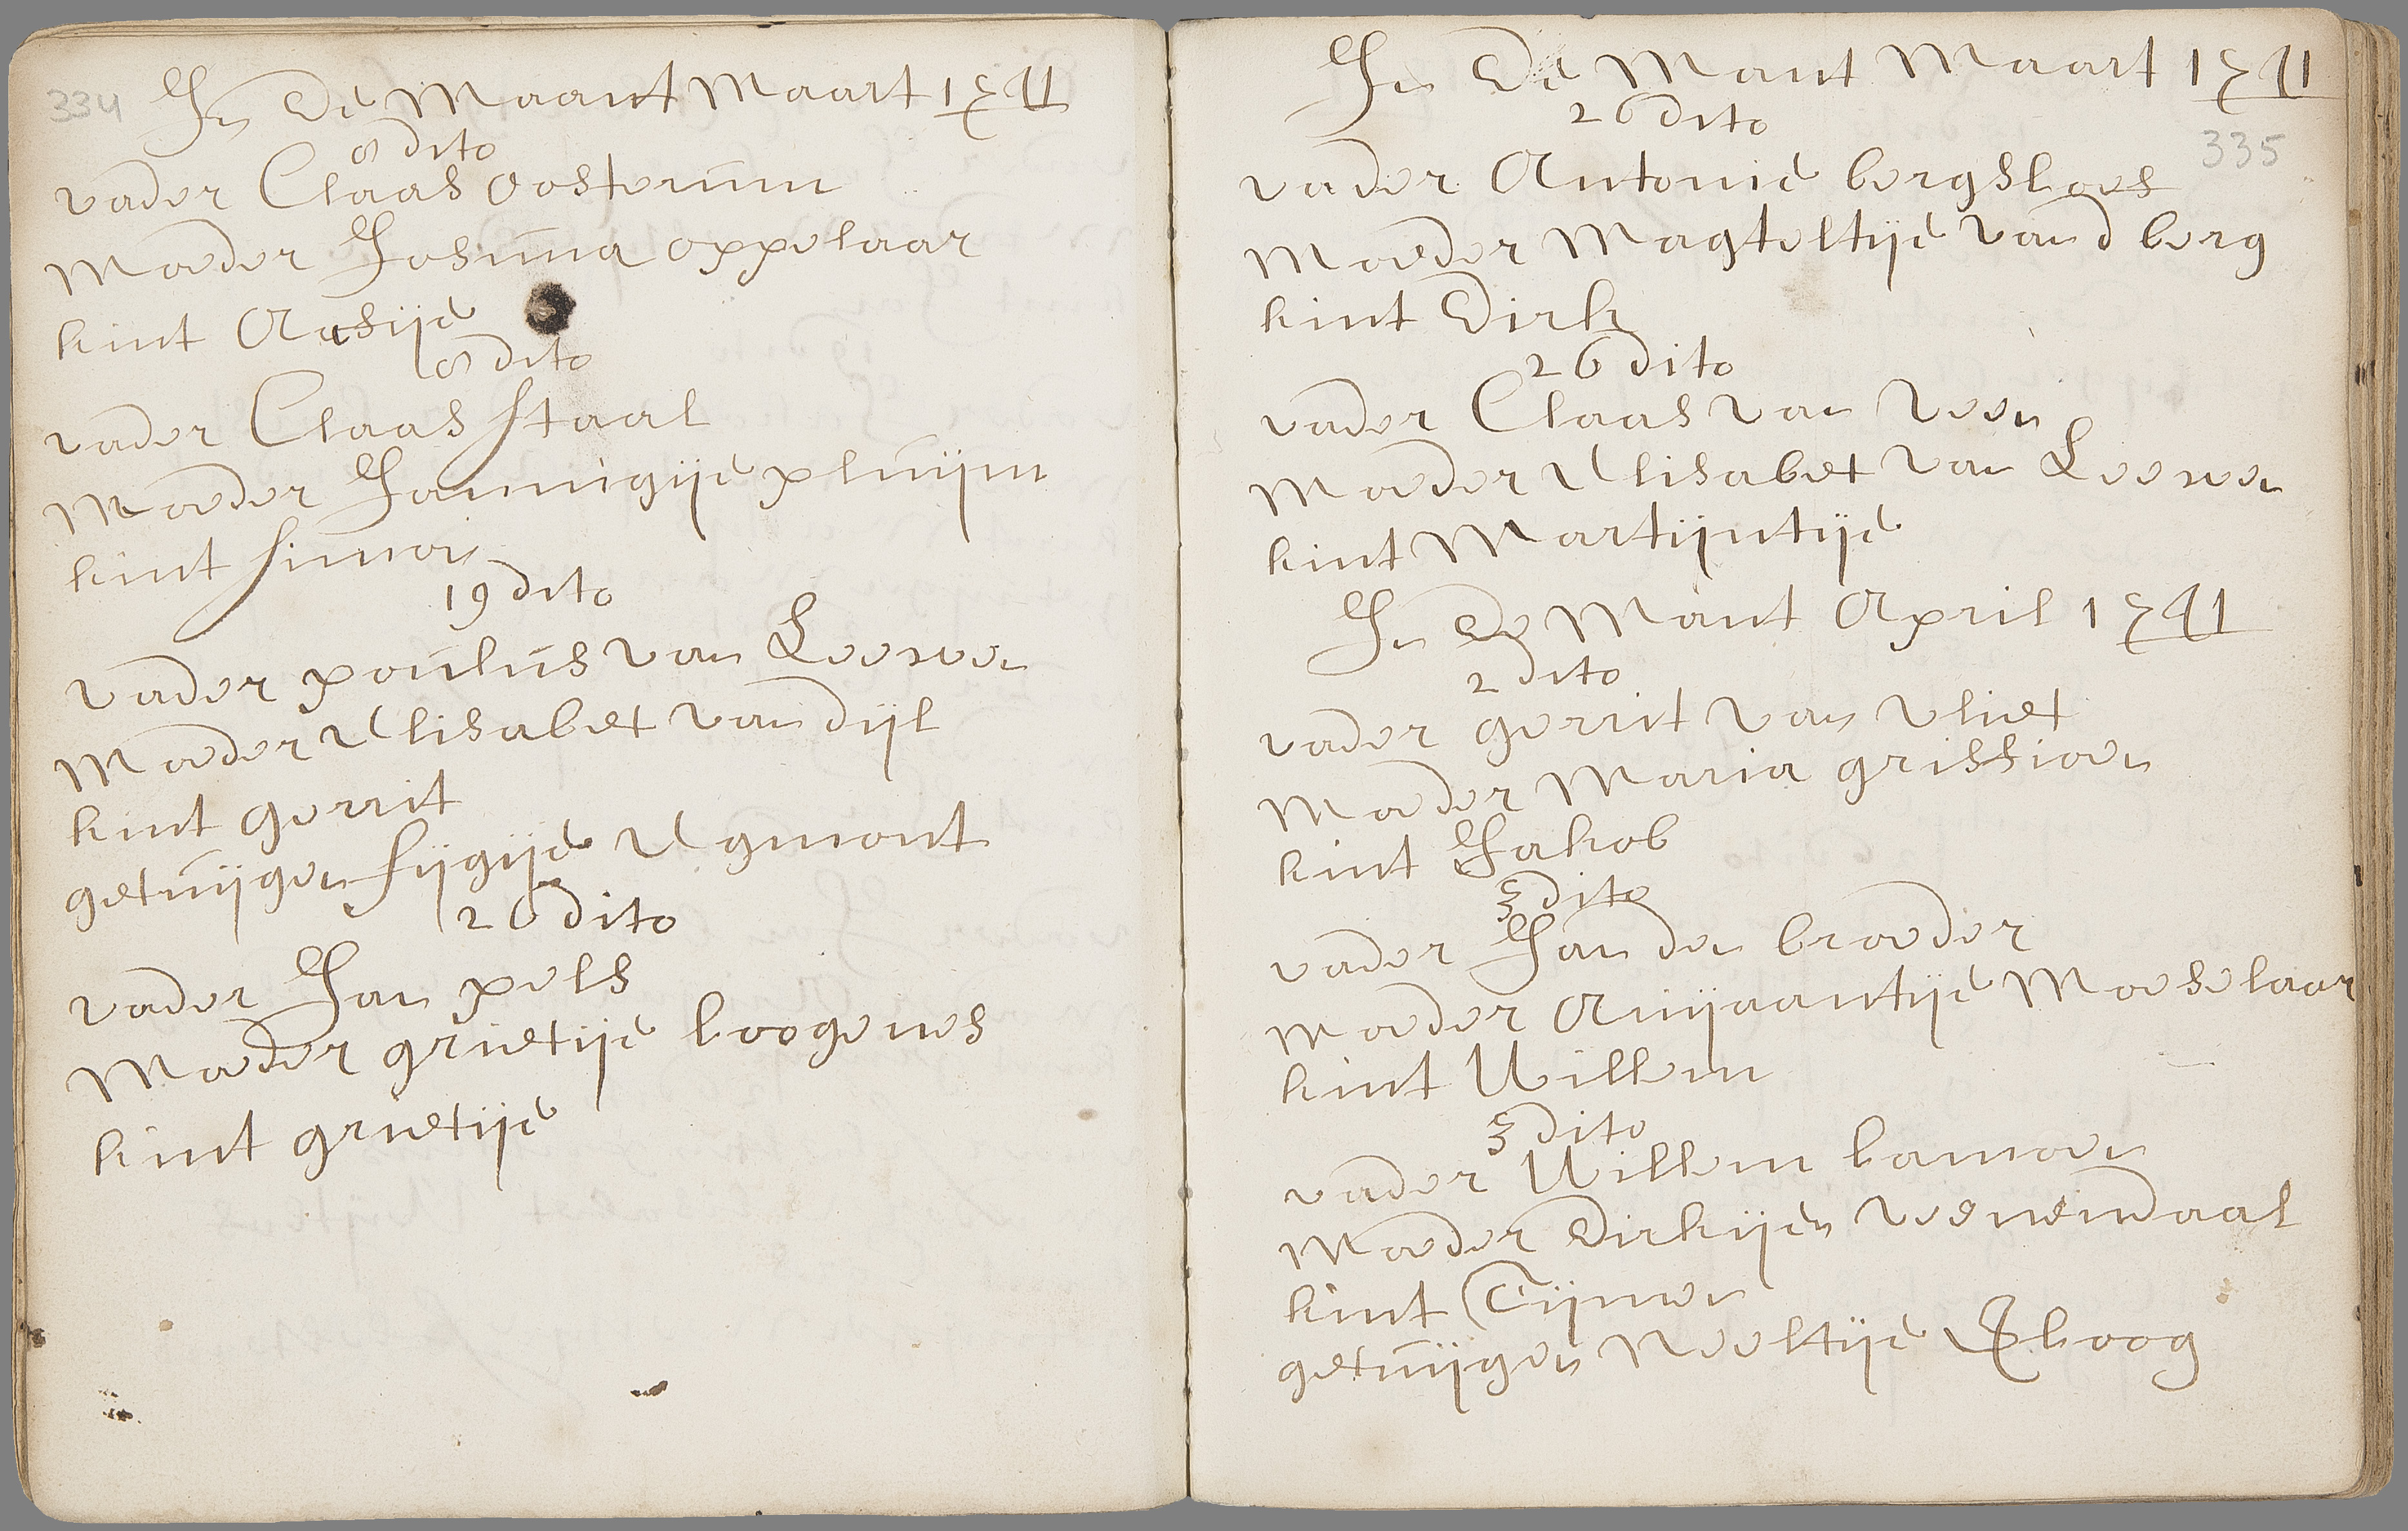 334
In De Maant Maart 1741
8 dito
vader Claas oosterum
Moeder Josina oppelaar
kint Aesije
8 dito
vader Claas staal
Moeder Jannigije pluijm
kint simon
19 dito
vader poulus van Leewen
Moeder Elisabet van dijl
kint gerrit
getuijgen fijgije Egmont
26 dito
vader Jan pels
Moeder grietije hoogenes
kint grietije
In De Mant Maart 1741
26 dito
335
vader Antonie bergshoef
Moeder Magteltije vand berg
kint Dirk
26 dito
vader Claas van veen
Moeder Elisabet van Leewen
kint Martijntije
In De Mant April 1741
2 dito
vader gerrit van vliet
Moeder Maria grissioen
kint Jakob
3 dito
vader Jan den broeder
Moeder Arijaantije Moeselaar
kint Willem
3 dito
vader Willem
Moeder Dirkijen veenendaal
kint Tijmen
getuijgen Neeltije hoog